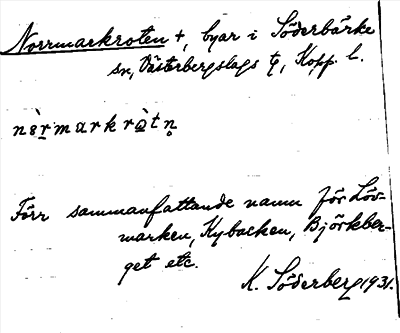 Norrmarkroten +, byar i Söderbärke
sn, Västerbergslags tg, Kopp. l.
nè̤r̤markrò̤tn̥
Förr sammanfattande namn för Löv-
marken, Kybacken, Björkber-
get etc.
K. Söderberg 1931.